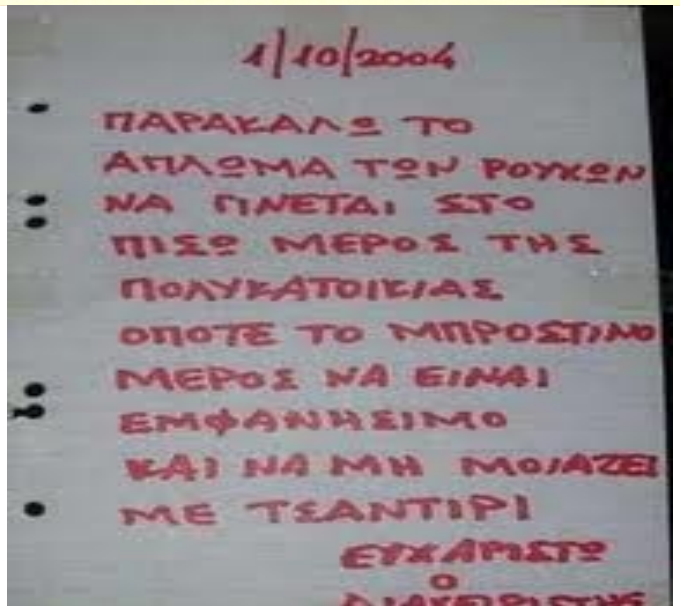 1/10/2004
ΠΑΡΑΚΑΛΩ ΤΟ
ΑΠΛΩΜΑ ΤΩΝ ΡΟΥΧΩΝ
ΝΑ ΓΙΝΕΤΑΙ ΣΤΟ
ΠΙΣΩ ΜΕΡΟΣ ΤΗΣ
ΠΟΛΥΚΑΤΟΙΚΙΑΣ
ΟΠΟΤΕ ΤΟ ΜΠΡΟΣΤΙΝΟ
ΜΕΡΟΣ ΝΑ ΕΙΝΑΙ
ΕΜΦΑΝΗΣΙΜΟ
ΚΑΙ ΝΑ ΜΗ ΜΟΙΑΖΕΙ
ΜΕ ΤΣΑΝΤΙΡΙ
ΕΥΧΑΡΙΣΤΩ
Ο
ΔΙΑΧΕΙΡΙΣΤΗΣ